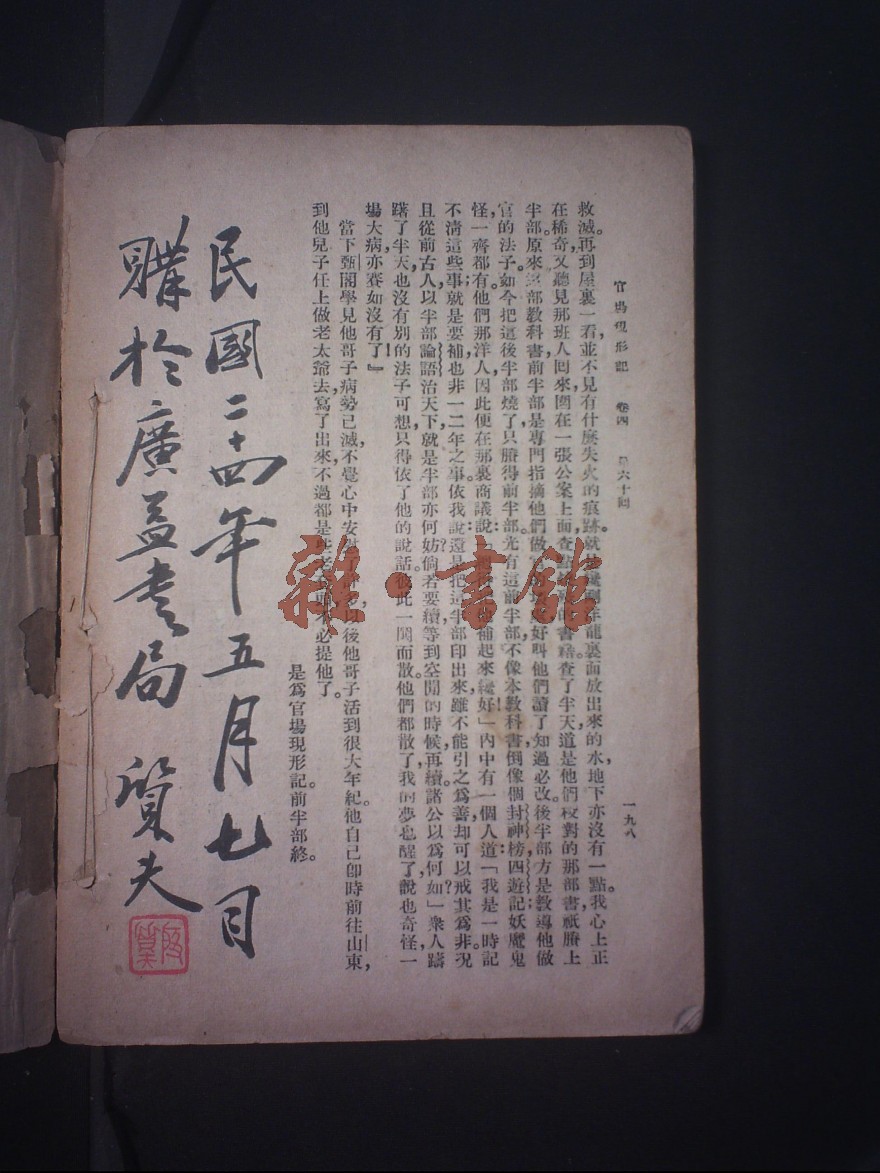 官場現形記 卷四 第六十回
一九八
救滅。再到屋裏一看,並不見有什麽失火的痕跡。就是纔剛洋龍裏面放出來的水,地下亦沒有一點。我心上正
在稀奇,又聽見那班人回來,圍在一張公案上面,查點的書籍。查了半天,道是他們校對的那部書,祇賸上
半部。原來這部教科書,前半部是專門指摘他們做官的壞處,好叫他們讀了知過必改;後半部方是教導他做
官的法子。如今把這後半部燒了,只賸得前半部。光有這前半部,不像本教科書,倒像個封神榜、西遊記,妖魔鬼
怪,一齊都有。他們那洋人因此便在那裏商議說:補起來纔好。」內中有一個人道:「我是一時記
不清這些事,就是要補,也非一二年之事。依我說:還是把這半部印出來,雖不能引之爲善,却可以戒其爲非。況
且從前古人以半部論語治天下,就是半部亦何妨?倘若要續,等到空閒的時候再續。諸公以爲何如?」衆人躊
躇了半天,也沒有別的法子可想,只得依了他的說話,彼此一鬨而散。他們都散了,我的夢也醒了。說也奇怪,一
場大病,亦賽如沒有了!』
當下甄閣學見他哥子病勢已減,不覺心中安以後他哥子活到很大年紀。他自己卽時前往山東,
到他兒子任上做老太爺去。寫了出來,不過都是些老不必提他了。
是爲官場現形記。前半部終。
民國二十四年五月七日
購於廣益書局 質夫
雜·書館